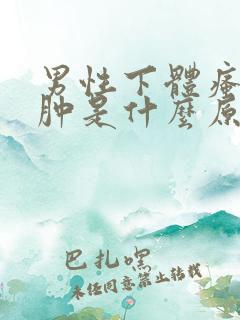 男性下體瘙
肿是什麼原
巴扎嘿
未经同意禁止转载